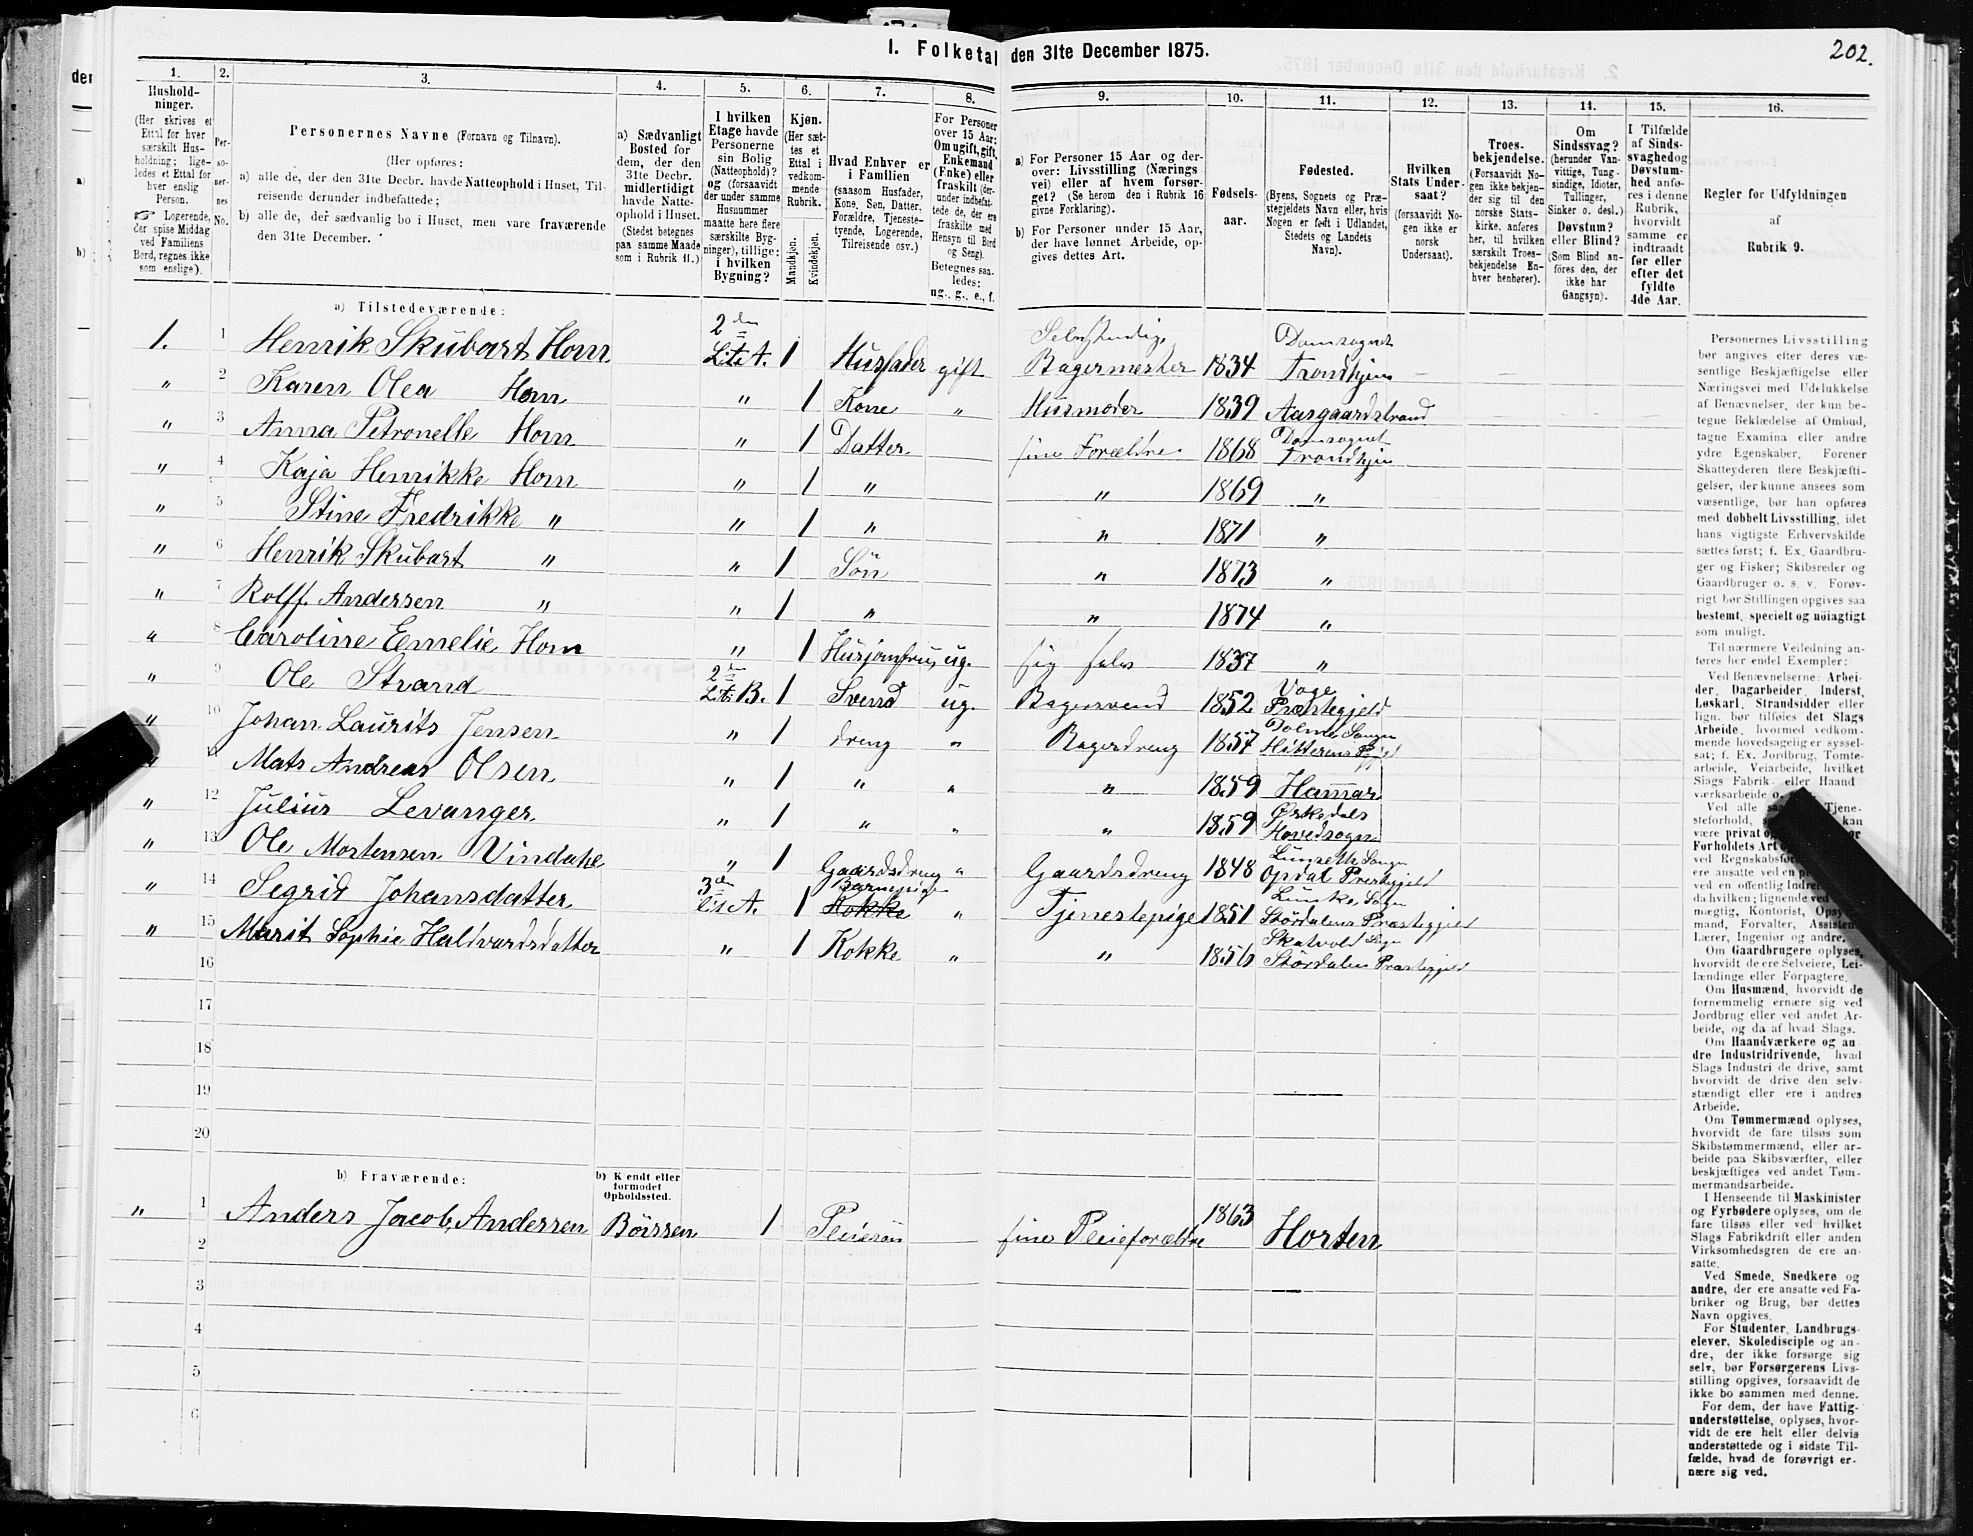 I. Folketal den 31te December 1875.
202.
1.
Husholdninger.
(Her skrives et Ettal for hver særskilt Husholdning; ligeledes et Ettal for hver enslig Person.
☞ Logerende, der spise Middag ved Familiens Bord, regnes ikke som enslige).
2.
Personernes No.
3.
Personernes Navne (Fornavn og Tilnavn).
(Her opføres:
a) alle de, der den 31te Decbr. havde Natteophold i Huset, Tilreisende derunder indbefattede;
b) alle de, der sædvanlig bo i Huset, men vare fraværende den 31te December.
4.
a) Sædvanligt Bosted for dem, der den 31te Decbr. midlertidigt havde Natteophold i Huset. (Stedet betegnes paa samme Maade som i Rubrik 11.)
5.
I hvilken Etage havde Personerne sin Bolig (Natteophold)? og (forsaavidt der under samme Husnummer maatte høre flere særskilte Bygninger), tillige: i hvilken Bygning?
6.
Kjøn.
(Her sættes et Ettal i vedkommende Rubrik.
Mandkjøn.
Kvindekjøn.
7.
Hvad Enhver er i Familien
(saasom Husfader, Kone, Søn, Datter, Forældre, Tjenestetyende, Logerende, Tilreisende osv.)
8.
For Personer over 15 Aar: Om ugift, gift, Enkemand (Enke) eller fraskilt (derunder indbefattede de, der ere fraskilte med Hensyn til Bord og Seng). Betegnes saaledes: ug., g., e., f.
9.
a) For Personer 15 Aar og derover: Livsstilling (Næringsvei) eller af hvem forsørget? (Se herom den i Rubrik 16 givne Forklaring).
b) For Personer under 15 Aar, der have lønnet Arbeide, opgives dettes Art.
10.
Fødselsaar.
11.
Fødested.
(Byens, Sognets og Præstegjeldets Navn eller, hvis Nogen er født i Udlandet, Stedets og Landets Navn).
12.
Hvilken Stats Undersaat?
(forsaavidt Nogen ikke er norsk Undersaat).
13.
Troesbekjendelse.
(Forsaavidt Nogen ikke bekjender sig til den norske Statskirke, anføres her, til hvilken særskilt Troesbekjendelse Enhver henhører).
14.
Om Sindssvag? (herunder Vanvittige, Tungsindige, Idioter, Tullinger, Sinker o. desl.) Døvstum? eller Blind? (Som Blind anføres den, der ikke har Gangsyn).
15.
I Tilfælde af Sindssvaghed og Døvstumhed anføres i denne Rubrik, hvorvidt samme er indtraadt før eller efter det fyldte 4de Aar.
16.
Regler for Udfyldningen af Rubrik 9.
a) Tilstedeværende:
1. 1 Henrik Skubart Horn 2den Lit. A. 1 Husfader gift Selvstændig Bagermester 1834 Domsognet Trondhjem
" 2 Karen Olea Horn " 1 Kone " Husmoder 1839 Aasgaardstrand
" 3 Anna Petronelle Horn " 1 Datter sine Forældre 1868 Domsognet Trondhjem
" 4 Kaja Henrikke Horn " 1 " " 1869 "
" 5 Stine Fredrikke " " 1 " " 1871 "
" 6 Henrik Skubart " " 1 Søn " 1873 "
" 7 Rolff. Andersen " " 1 " " 1874 "
" 8 Caroline Emelie Horn " 1 Husjomfru ug. sig selv 1837 "
" 9 Ole Strand 2den Lit. B. 1 Svend ug. Bagersvend 1852 Præstegjeld
" 10 Johan Laurits Jensen " 1 dreng " Bagerdreng 1857
" 11 Mats Andreas Olsen " 1 " " " 1859 Hamar
" 12 Julius Levanger " 1 " " " 1859 Ørkedals Hovedsogn
" 13 Ole Mortensen Vindahl " 1 Gaardsdreng " Gaardsdreng 1848 Opdal Prestegjeld
" 14 Segrid Johansdatter 3die Lit A. 1 Barnepige Kokke " Tjenestepige 1851 Størdalens Præstegjeld
" 15 Marit Sophie Haldvardsdatter " 1 Kokke " " 1856 Skatvold Sogn Stördalen Præstegjeld
16
17
18
19
20
b) Fraværende:
b) Kjendt eller formodet Opholdssted.
" 1 Anders Jacob Andersen Börssen 1 Pleiesøn sine Pleieforældre 1863 Horten
2
3
4
5
6
Personernes Livsstilling
bør angives efter deres væ-
sentlige Beskjæftigelse eller
Næringsvei med Udelukkelse
af Benævnelser, der kun be-
tegne Beklædelse af Ombud,
tagne Examina eller andre
ydre Egenskaber. Forener
Skatteyderen flere Beskjæfti-
gelser, der kunne ansees som
væsentlige, bør han opføres
med dobbelt Livsstilling, idet
hans vigtigste Erhvervskilde
sættes først; f. Ex. Gaardbru-
ger og Fisker; Skibsreder og
Gaardbruger o. s. v. Forøv-
rigt bør Stillingen opgives saa
bestemt, specielt og nöiagtigt
som muligt.
Til nærmere Veiledning an-
føres her endel Exempler:
Ved Benævnelserne: Arbei-
der, Dagarbeider, Inderst,
Løskarl, Strandsidder eller
lign. bør tilføies det Slags
Arbeide, hvormed vedkom-
mende hovedsagelig er syssel-
sat; f. Ex. Jordbrug, Tomte-
arbeide, Veiarbeide, hvilket
Slags Fabrik- eller Haand
værksarbeide o.
Ved alle Tjene-
steforhold, kan
være privat
Forholdets Art
ved
ere ansatte ved en
ved en offentlig
da hvilken; lignende ved
mægtig, Kontorist,
mand, Forvalter,
Lærer, Ingeniør og andre.
Om Gaardbrugere oplyses,
hvorvidt de ere Selveiere, Lei-
lændinge eller Forpagtere.
Om Husmænd, hvorvidt de
fornemmelig ernære sig ved
Jordbrug eller ved andet Ar-
beide, og da af hvad Slags.
Om Haandværkere og an
dre Industridrivende, hvad
Slags Industri de drive, samt
hvorvidt de drive den selv-
stændigt eller ere i andres
Arbeide.
Om Tømmermænd oplyses,
hvorvidt de fare tilsøs som
Skibstømmermænd, eller ar-
beide paa Skibsværfter, eller
beskjæftiges ved andet Tøm-
mermandsarbeide.
I Henseende til Maskinister
og Fyrbødere oplyses, om de
fare tilsøs eller ved hvilket
Slags Fabrikdrift eller anden
Virksomhedsgren de ere an-
satte.
Ved Smede, Snedkere og
andre, der ere ansatte ved Fa-
briker og Brug, bør dettes
Navn opgives.
For Studenter, Landbrugs-
elever, Skoledisciple og an-
dre, der ikke forsørge sig
selv, bør Forsørgerens Livs-
stilling opgives, forsaavidt de
ikke bo sammen med denne.
For dem, der have Fattig-
understøttelse, oplyses, hvor-
vidt de ere helt eller delvis
understøttede og i sidste Til-
fælde, hvad de forøvrigt er-
nære sig ved.